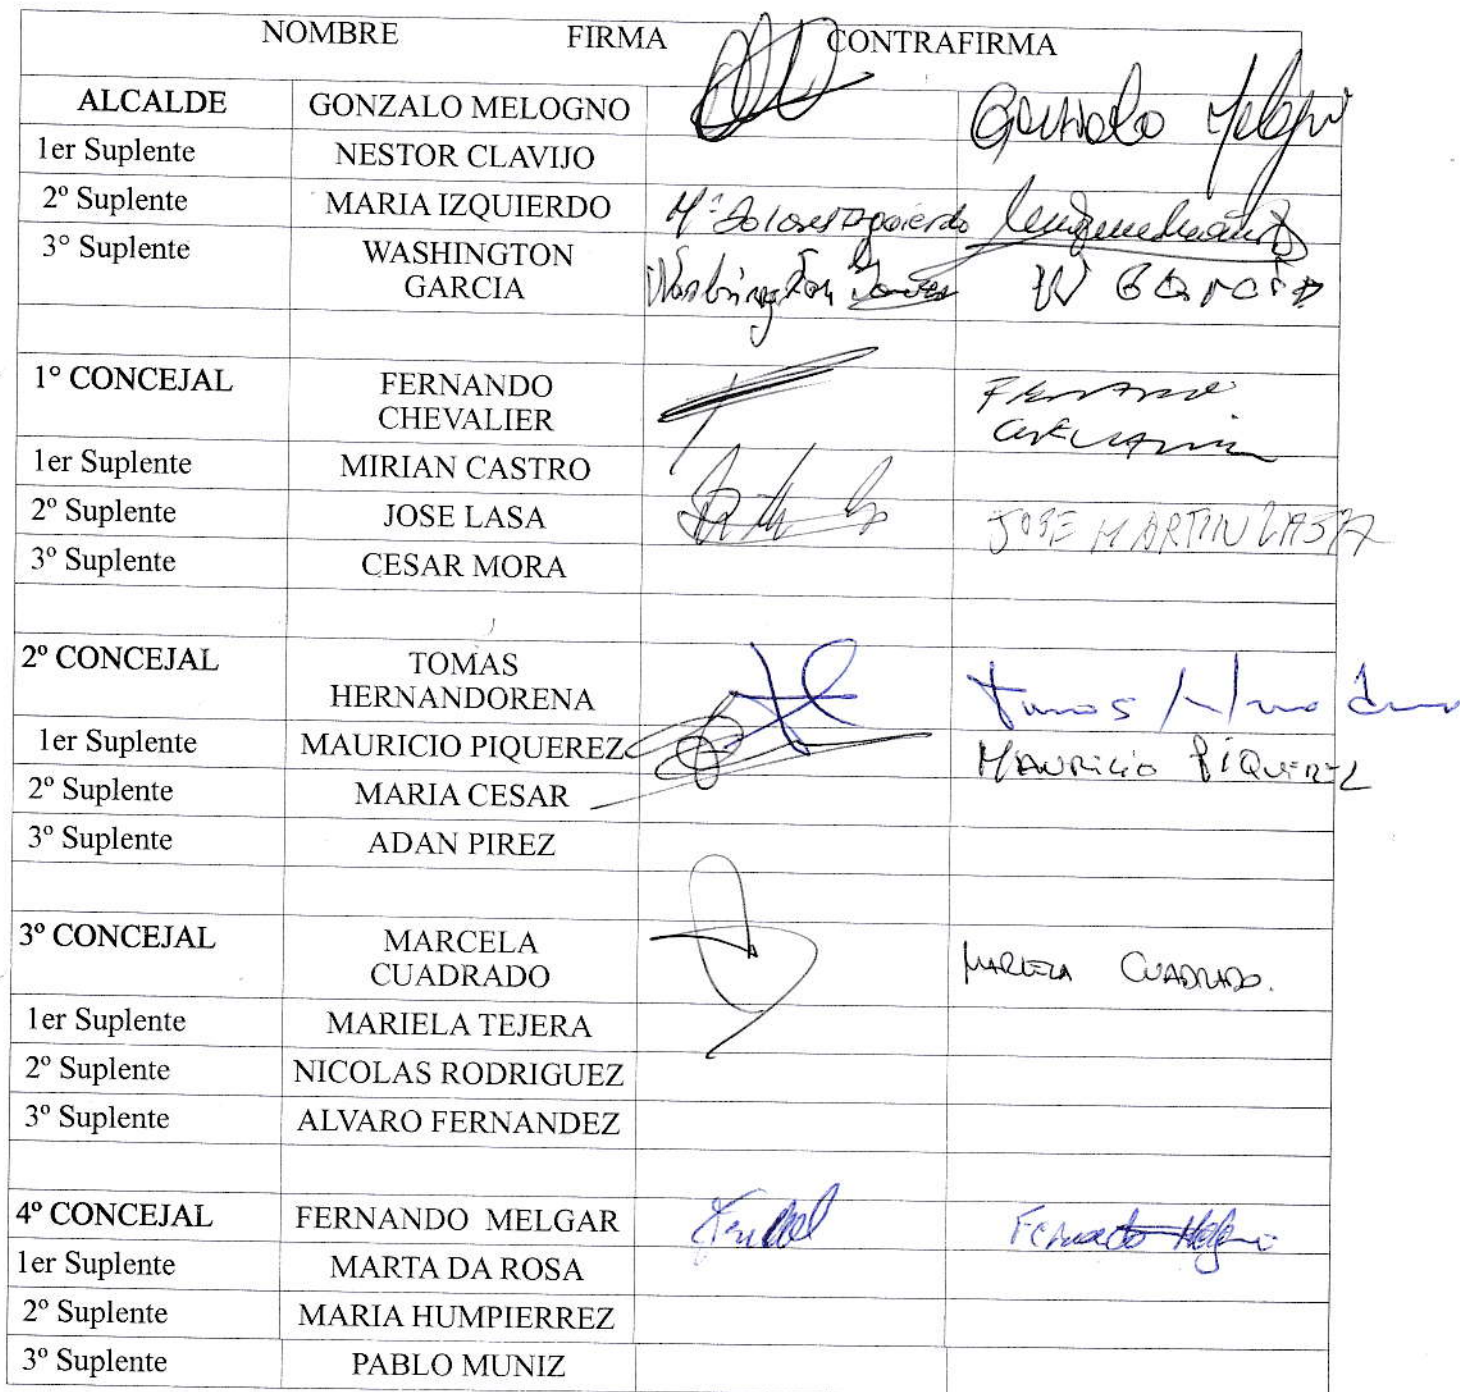 NOMBRE FIRMA CONTRAFIRMA
ALCALDE GONZALO MELOGNO Gonzalo Melogno
1er Suplente NESTOR CLAVIJO
2º Suplente MARIA IZQUIERDO Mª Dolores Izquierdo
3° Suplente WASHINGTON
GARCIA Washington W GARCIA
1° CONCEJAL FERNANDO
CHEVALIER FERNANDO
CHEVALIER
1er Suplente MIRIAN CASTRO
2º Suplente JOSE LASA JOSE MARTIN LASA
3º Suplente CESAR MORA
2º CONCEJAL TOMAS
HERNANDORENA Tomas
1er Suplente MAURICIO PIQUEREZ MAURICIO PIQUEREZ
2º Suplente MARIA CESAR
3º Suplente ADAN PIREZ
3º CONCEJAL MARCELA
CUADRADO MARCELA CUADRADO.
1er Suplente MARIELA TEJERA
2º Suplente NICOLAS RODRIGUEZ
3º Suplente ALVARO FERNANDEZ
4º CONCEJAL FERNANDO MELGAR Fernando Melgar
1er Suplente MARTA DA ROSA
2º Suplente MARIA HUMPIERREZ
3º Suplente PABLO MUNIZ